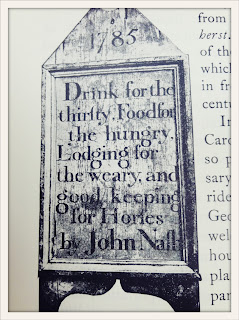 1785
Drink for the
thirsty, Food for
the hungry,
Lodging for
the weary, and
good keeping
for Horses
by John Nash
from
herst.
of the
which
in fr
centu
In
Card
so p
sary
ride
Geo
wel
hou
pla
par